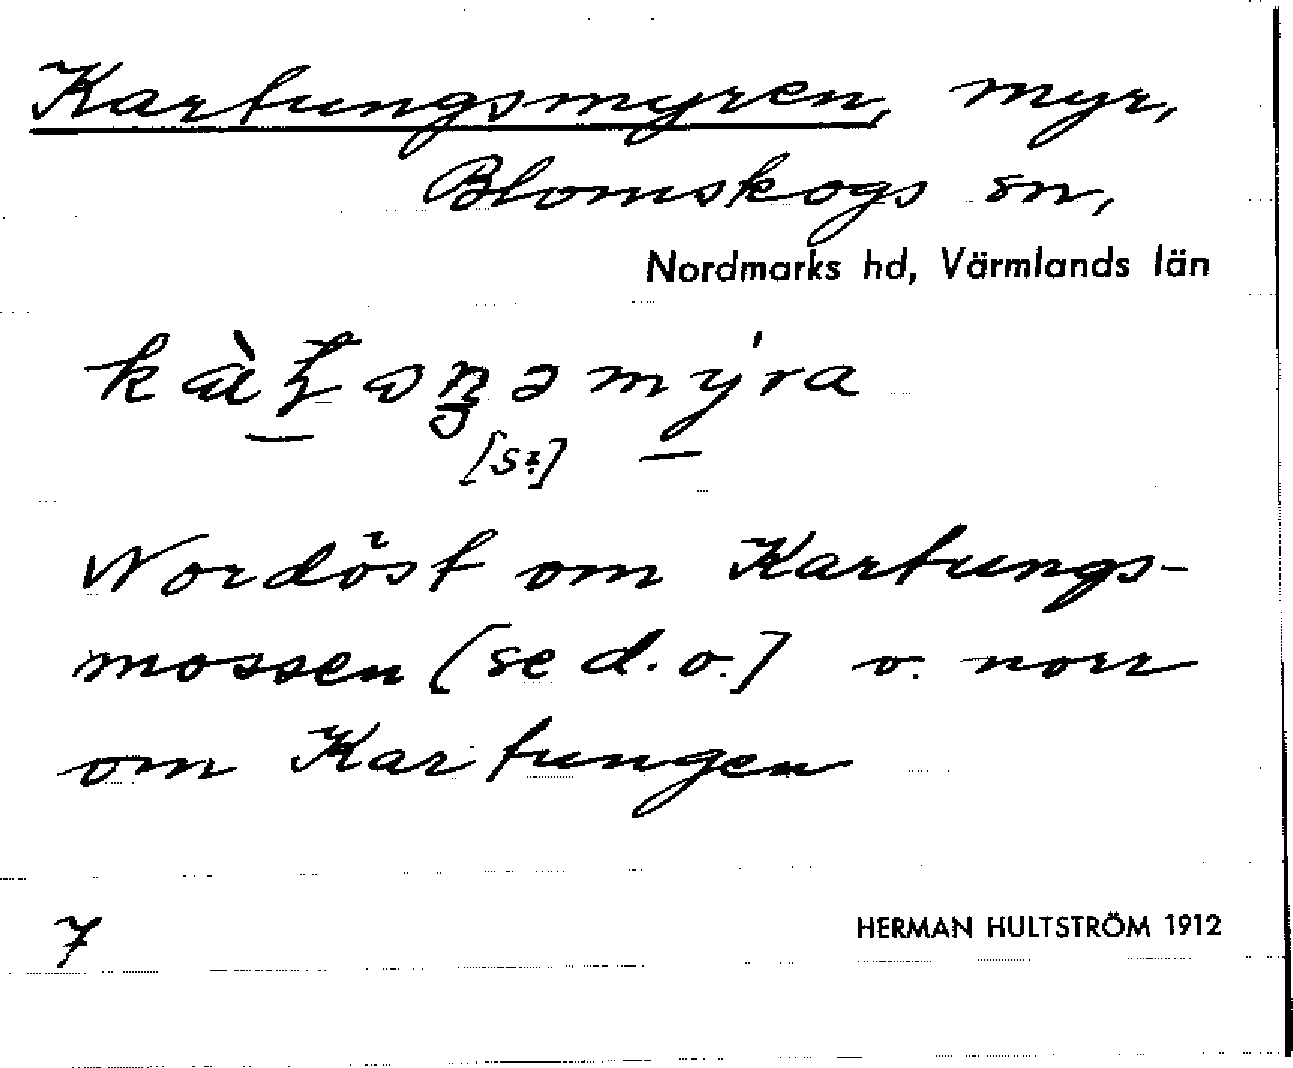 Kartungsmyren, myr,
Blomskogs sn,
Nordmarks hd, Värmlands län
[s?]
Nordöst om Kartungs-
mossen [se d.o.] o. norr
om Kartungen
7
HERMAN HULTSTRÖM 1912